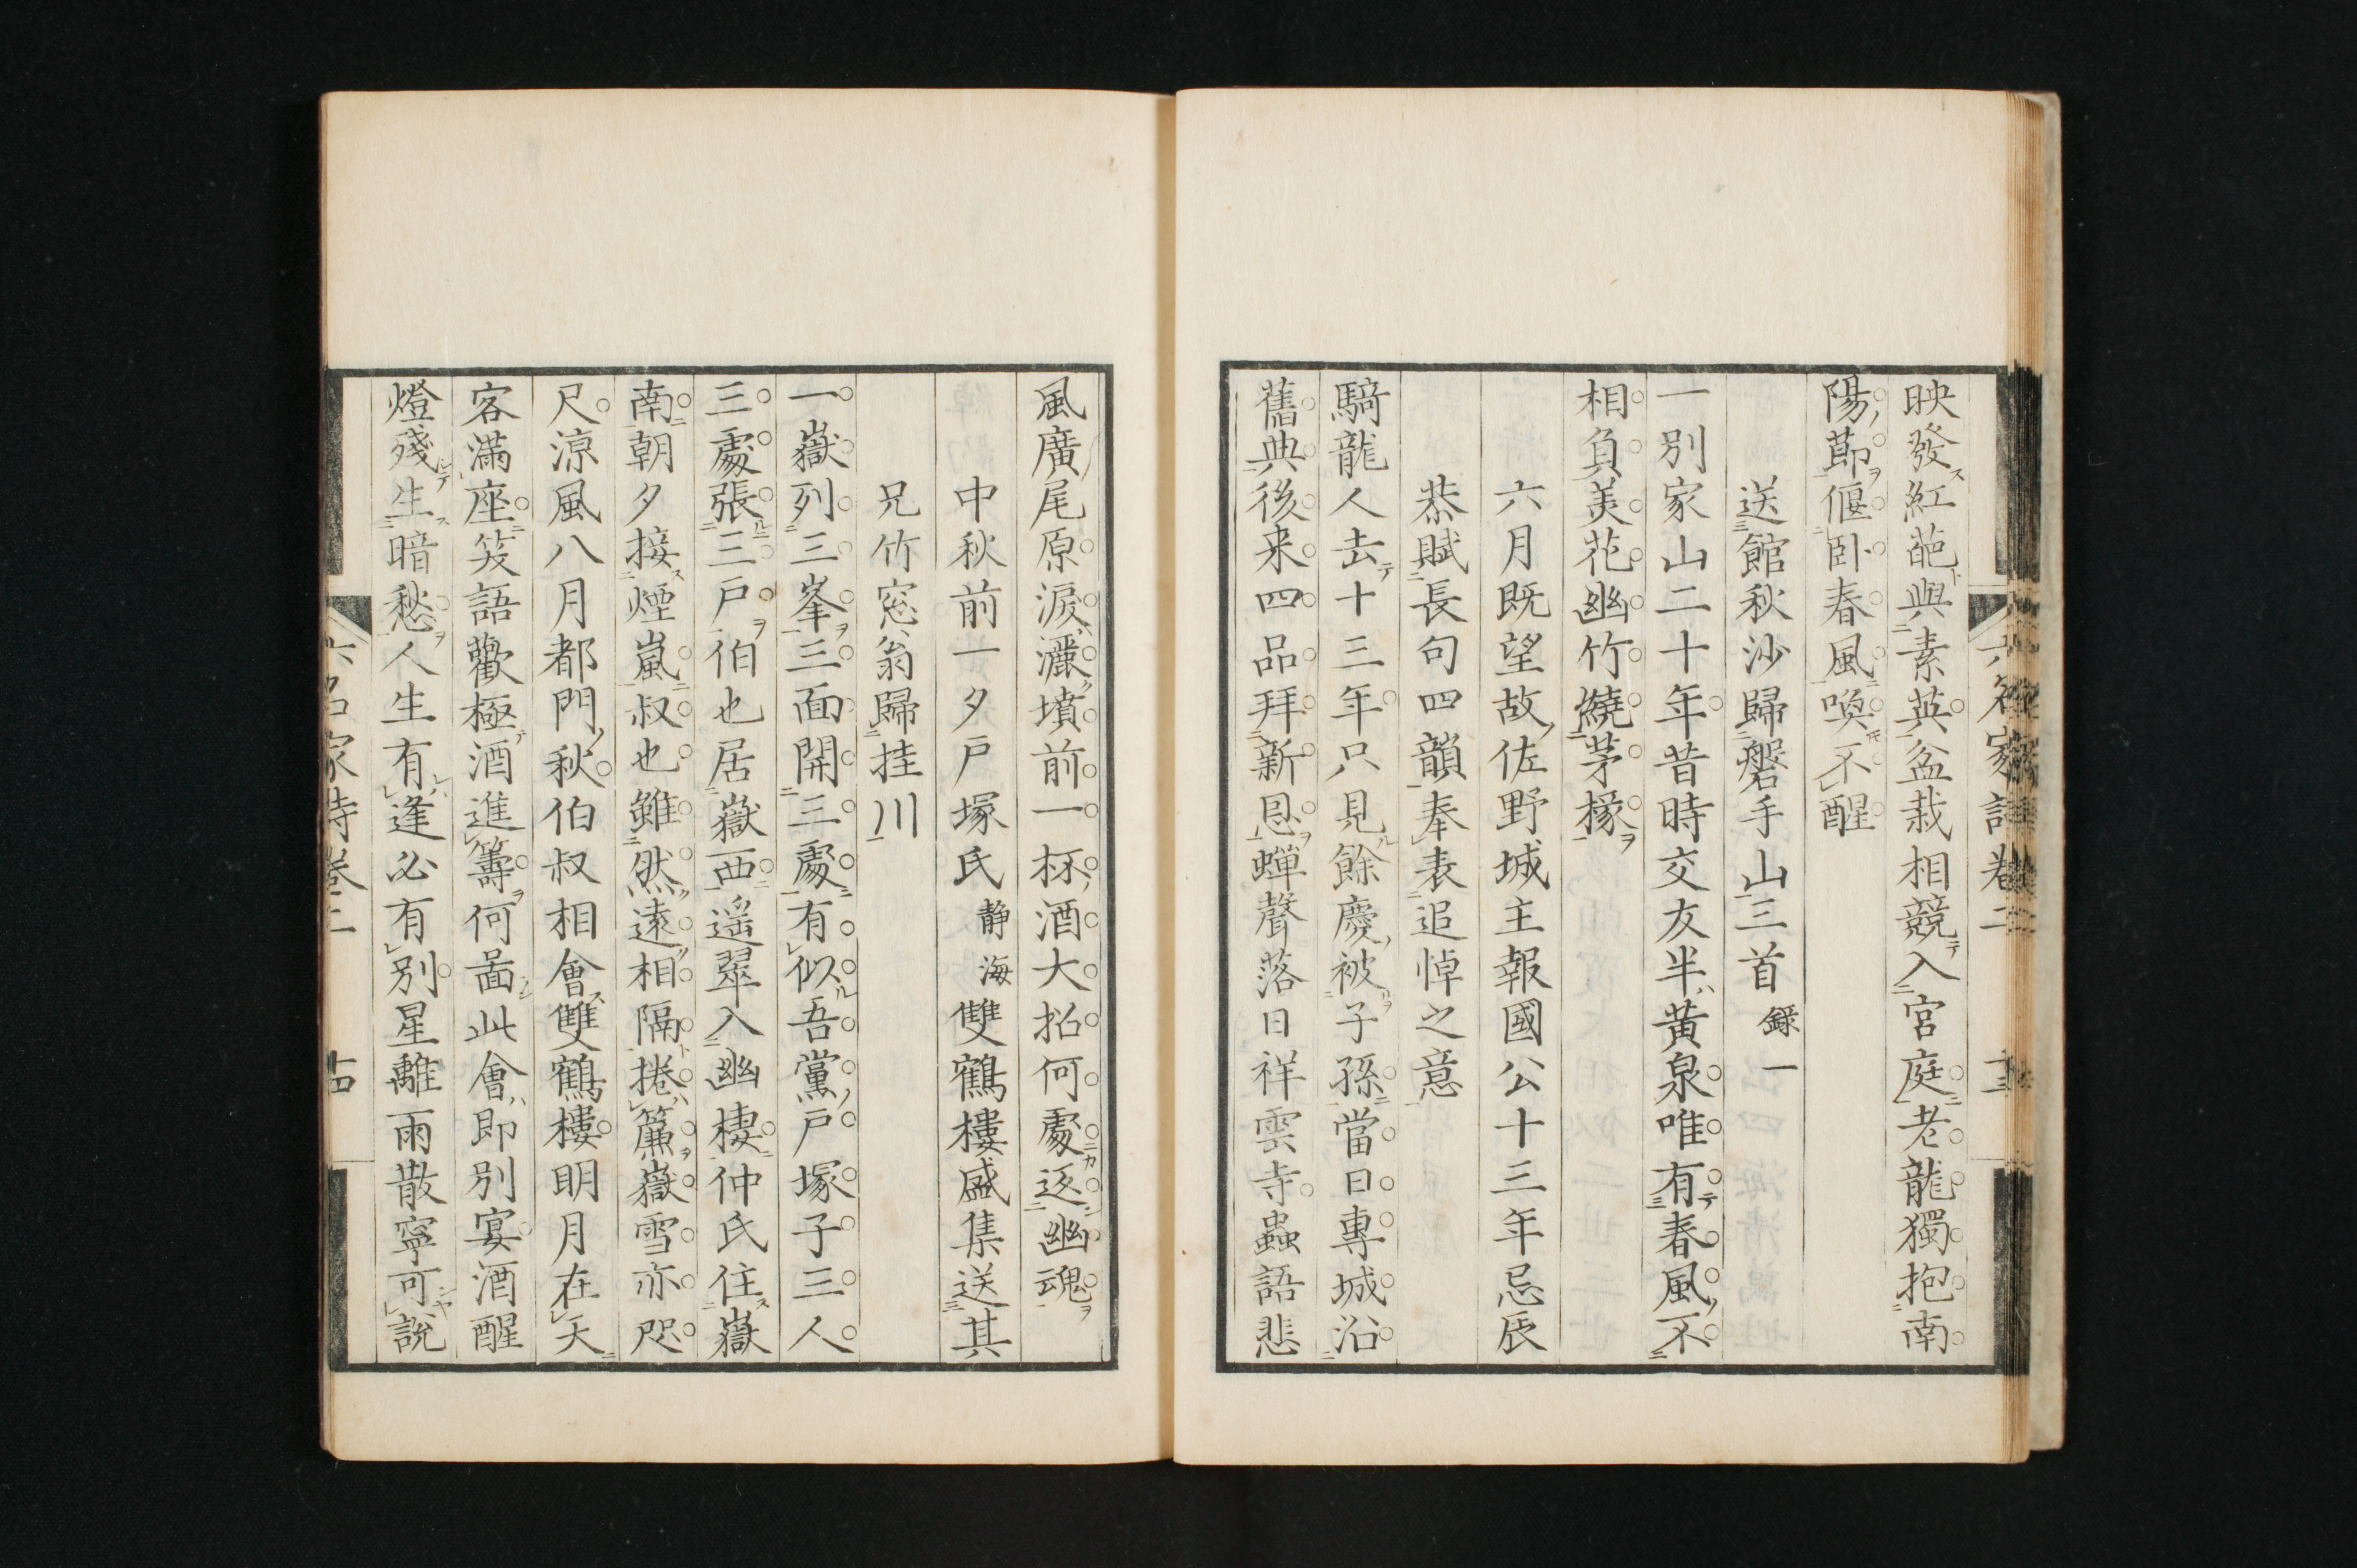 映發紅葩與素英盆栽相競入宮庭老龍獨抱南
陽節偃卧春風喚不醒
送館秋沙歸磐手山三首錄一
一別家山二十年昔時交友半黃泉唯有春風不
相負美花幽竹繞茅椽
六月既望故佐野城主報國公十三年忌辰
恭賦長句四韻奉表追悼之意
騎龍人去十三年只見餘慶被子孫當日專城沿
舊典後来四品拜新恩蟬聲落日祥雲寺蟲語悲
風廣尾原淚灑墳前一杯酒大招何處返幽魂
中秋前一夕戸塚氏静海雙鶴樓盛集送其
兄竹窓翁歸挂川
一嶽列三峯三面開三處有似吾黨戸塚子三人
三處張三戸伯也居嶽西遥翠入幽棲仲氏住嶽
南朝夕接煙嵐叔也雖然遠相隔捲簾嶽雪亦咫
尺涼風八月都門秋伯叔相會雙鶴樓明月在天
客滿座笑語歡極酒進籌何啚此會即別宴酒醒
燈殘生暗愁人生有逢必有別星離雨散寧可說
六名家詩卷二
十四